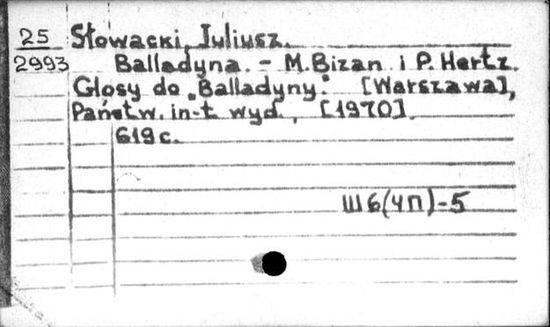 25 Słowacki, Juliusz.
2993 Balladyna. - M. Bizan i P. Hertz.
Glosy do „Balladyny". [Warszawa],
Państw. in-t wyd., [1970].
619 с.
Ш6(4П)-5